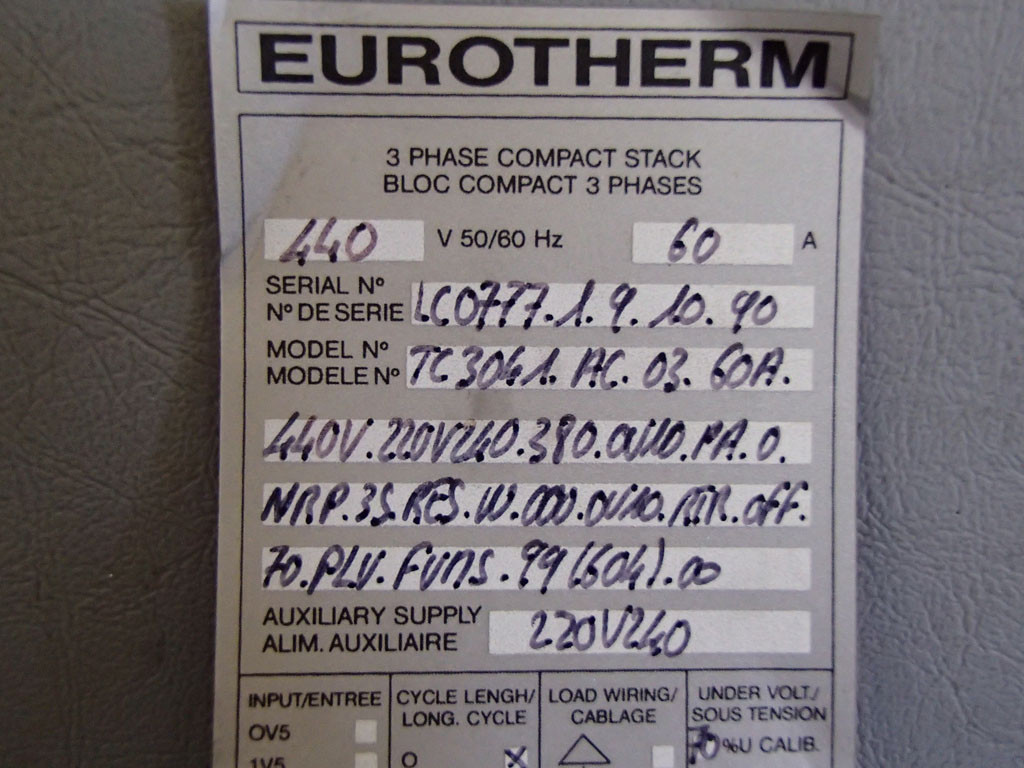 EUROTHERM
3 PHASE COMPACT STACK
BLOC COMPACT 3 PHASES
440 V 50/60 Hz 60 A
SERIAL Nº
Nº DE SERIE LC0777.1.9.10.90
MODEL Nº
MODELE Nº TC3041.AC.03.60A.
440V.220V240.380.0V10.PA.0.
NRP.3S.RES.W.000.0V10.RTR.OFF.
70.PLV.FUMS.99(604).00
AUXILIARY SUPPLY
ALIM. AUXILIAIRE 220V240
INPUT/ENTREE
OV5
1V5
CYCLE LENGH/
LONG. CYCLE
O X
LOAD WIRING/
CABLAGE
UNDER VOLT./
SOUS TENSION
70 %U CALIB.